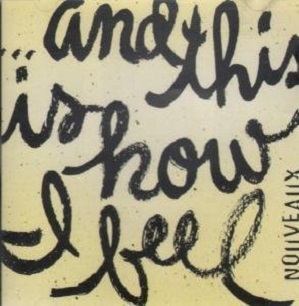 ... and this
is how
I feel
NOUVEAUX